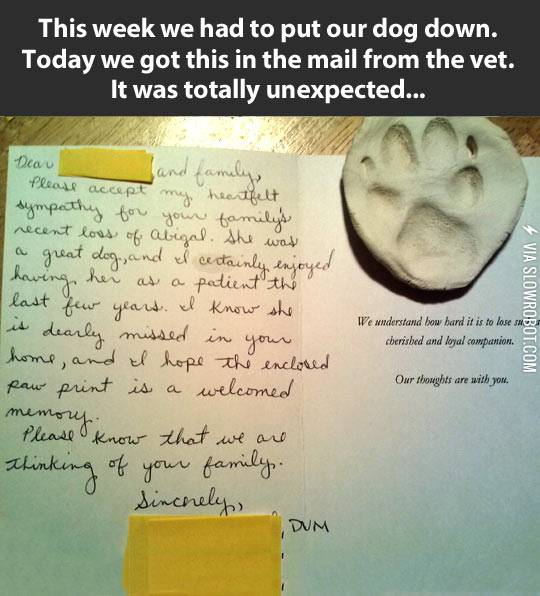 This week we had to put our dog down.
Today we got this in the mail from the vet.
It was totally unexpected...
Dear and family,
Please accept my heartfelt
sympathy for your family's
recent loss of Abigal. She was
a great dog, and I certainly enjoyed
having her as a patient the
last few years. I know she
is dearly missed in your
home, and I hope the enclosed
paw print is a welcomed
memory.
Please know that we are
thinking of your family.
Sincerely,
, DVM
We understand how hard it is to lose such a
cherished and loyal companion.
Our thoughts are with you.
VIA SLOWROBOT.COM